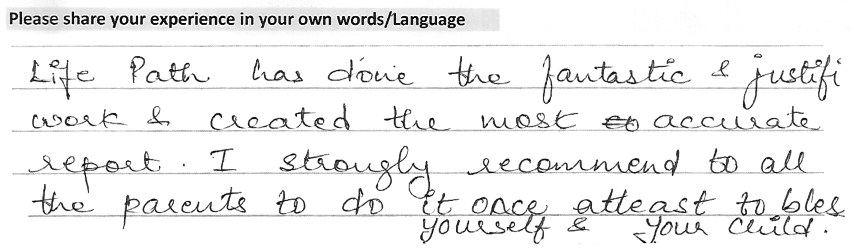 Please share your experience in your own words/Language
Life Path has done the fantastic & justifi
work & created the most accurate
report. I strongly recommend to all
the parents to do it once atleast to bles
yourself & your child.